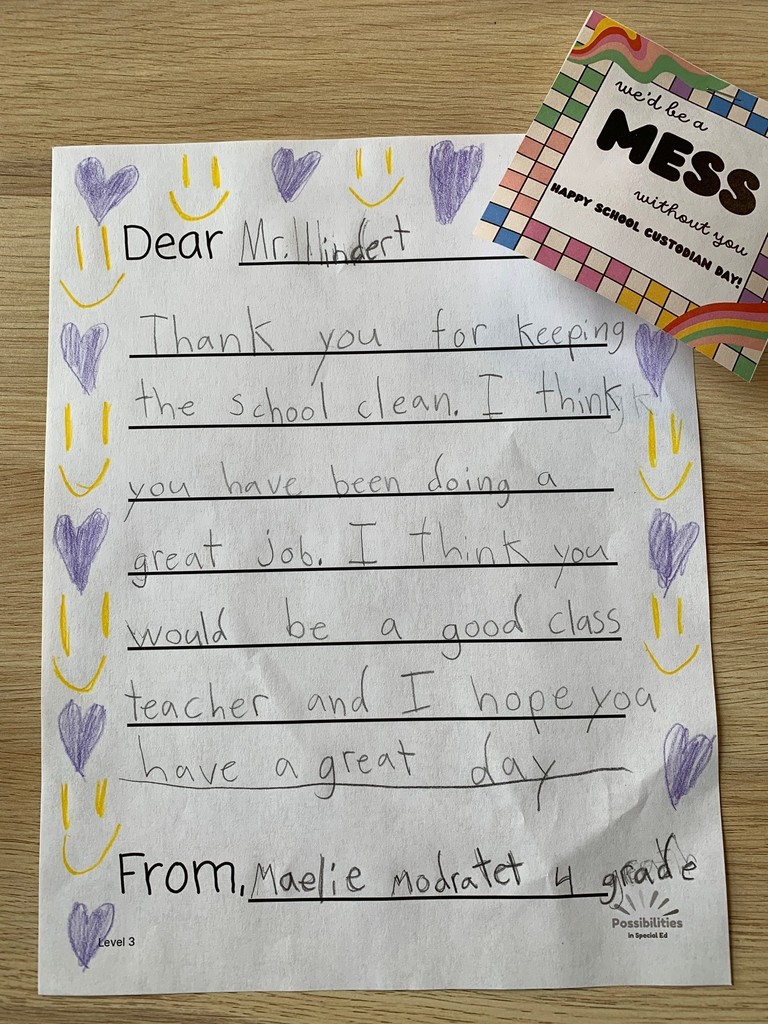 we'd be a
MESS
without you
HAPPY SCHOOL CUSTODIAN DAY!
Dear Mr. Hindert
Thank you for keeping
the school clean. I think
you have been doing a
great job. I think you
would be a good class
teacher and I hope you
have a great day
From, Maelie Modratet 4 grade
Possibilities
in Special Ed
Level 3